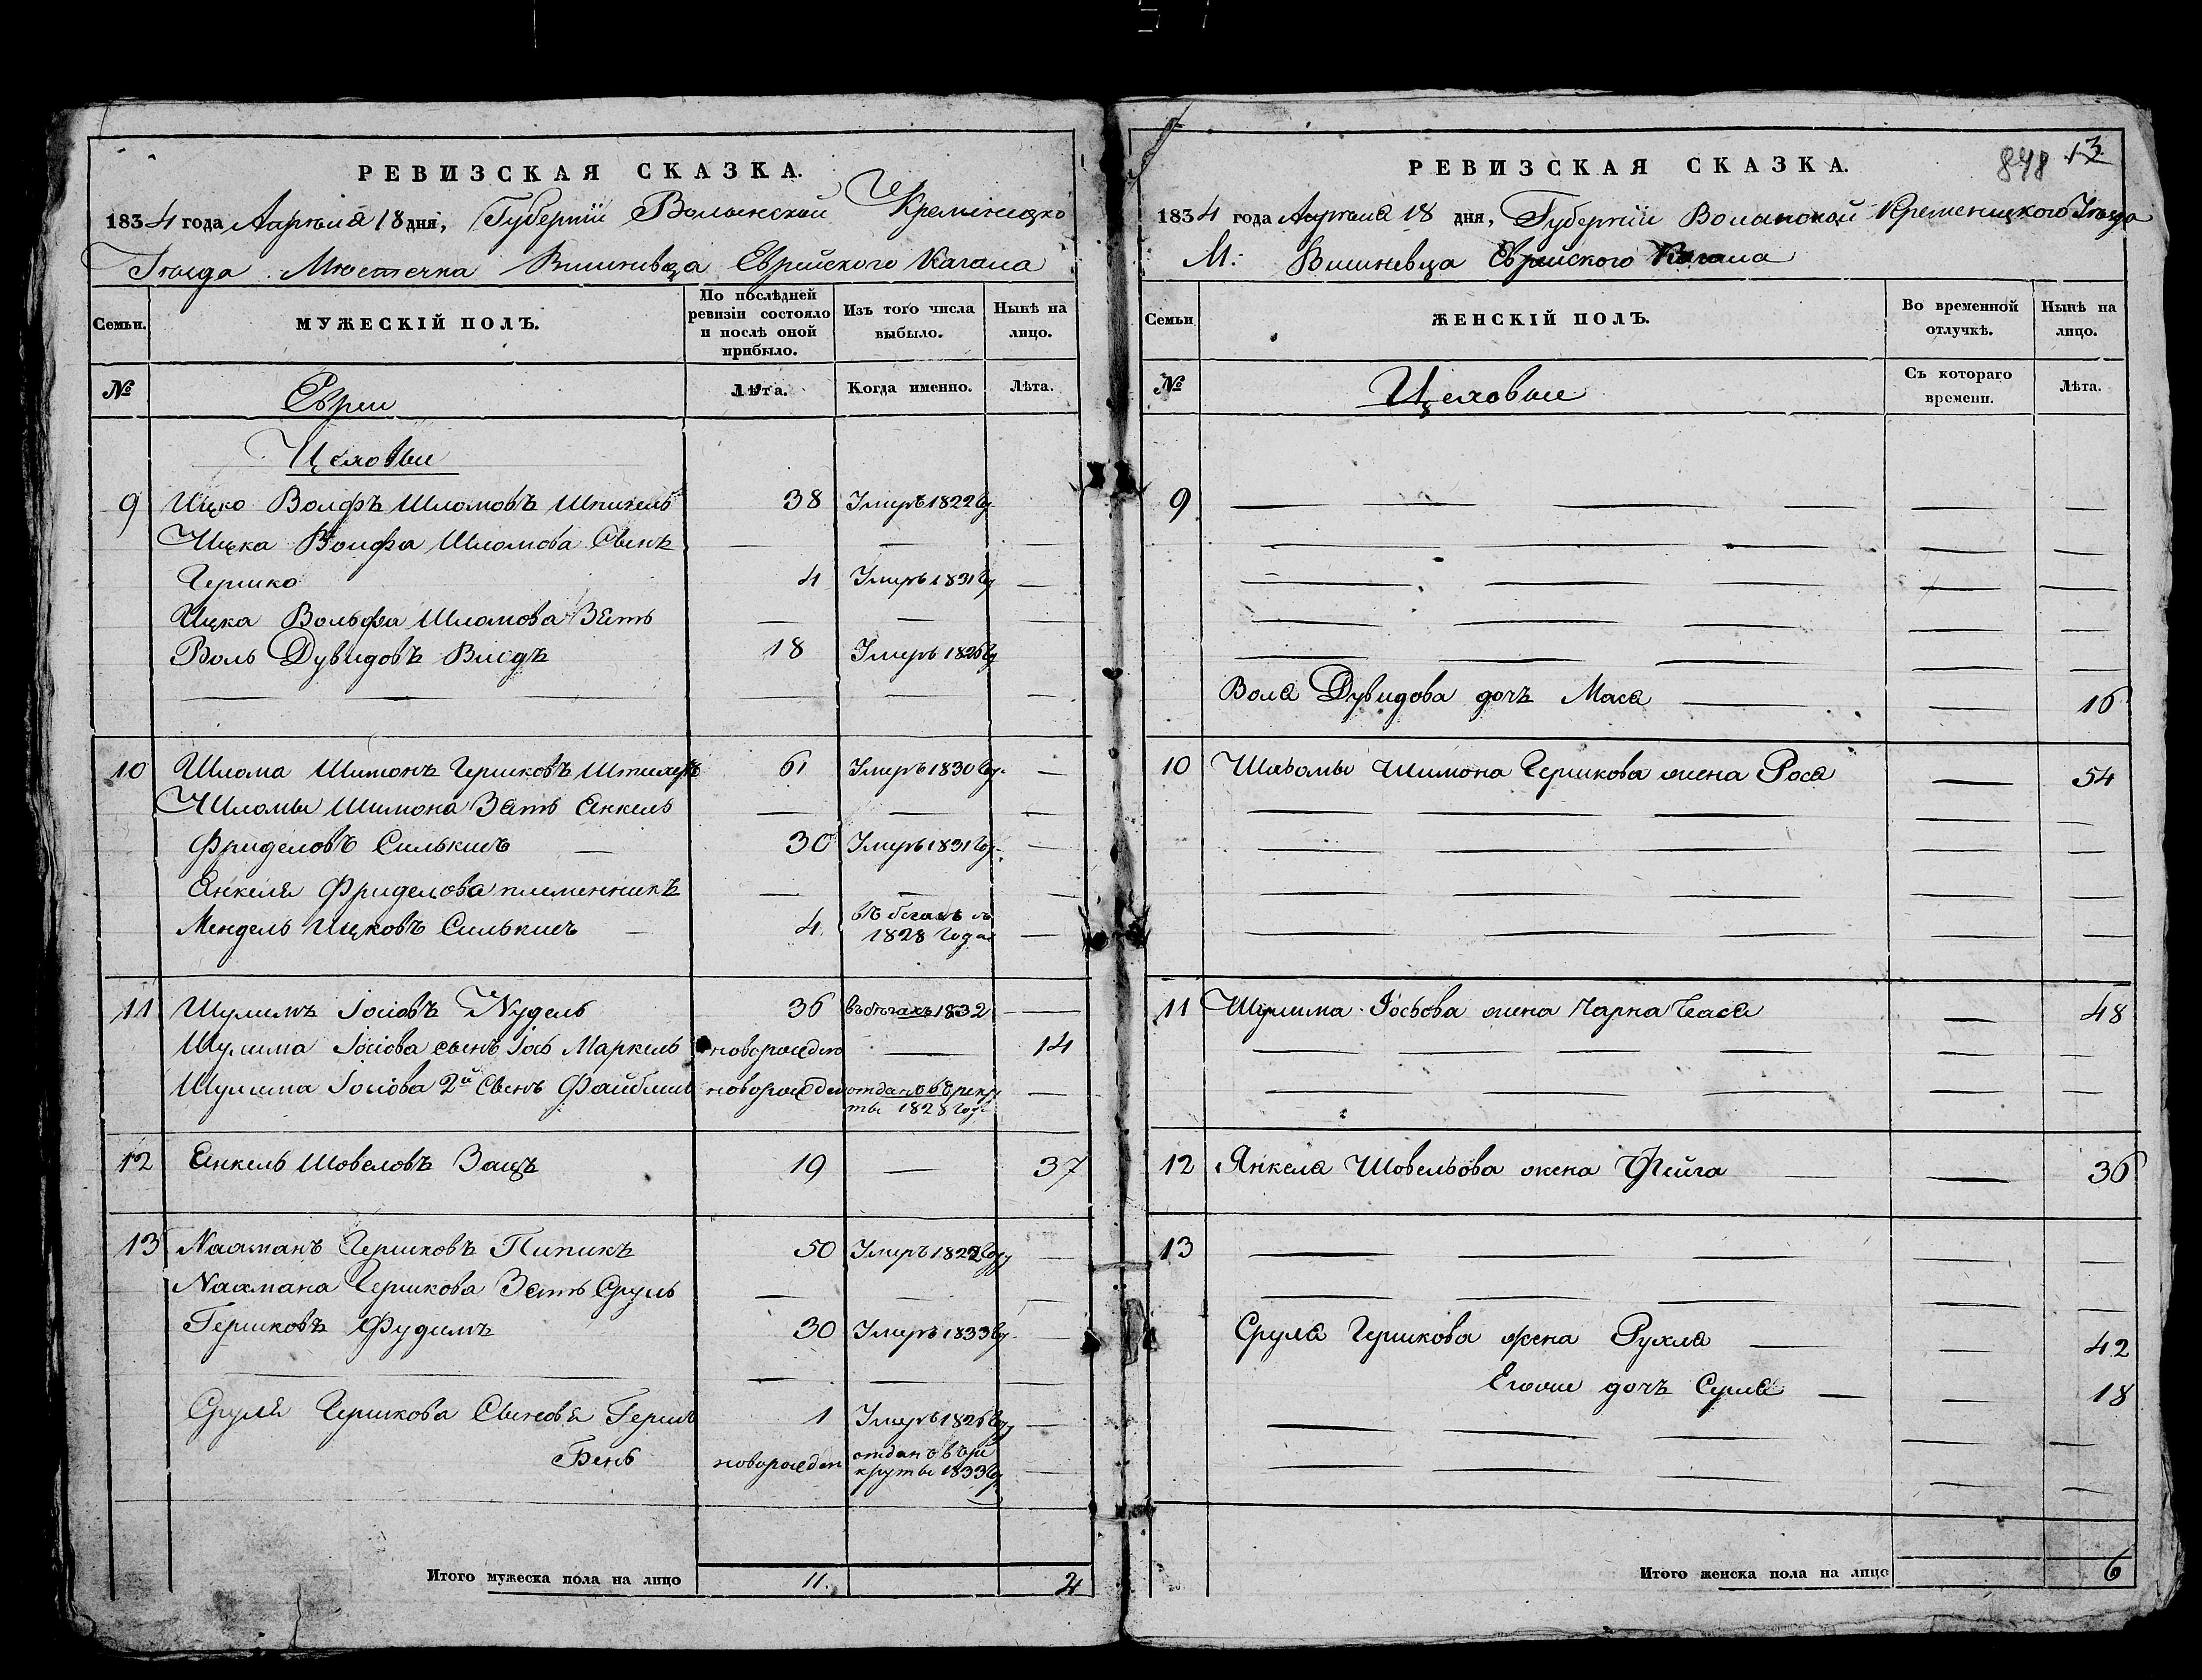 РЕВИЗСКАЯ СКАЗКА.
1834 года Апреля 18 дня, Губернии Волынской Кременецко
Уезда Местечка Вишневца Еврейского Кагала
Семьи.
МУЖЕСКІЙ ПОЛЪ.
По послѣдней ревизіи состояло и послѣ оной прибыло.
Изъ того числа выбыло.
Нынѣ на лицо.
№
Евреи
Лѣта.
Когда именно.
Лѣта.
Цеховые
9 Ицко Волфъ Шломовъ 38 Умеръ 1822 го
Ицка Волфа Шломова Сынъ
Гершко 4 Умеръ 1831 го
Ицка Вольфа Шломова Зять
Воль Дувидовъ 18 Умеръ 1826 го
10 Шлома Шимонъ Гершковъ 61 Умеръ 1830 го.
Шломы Шимона Зять Янкель
Фриделовъ Силькисъ 30 Умеръ 1831 го.
Янкеля Фриделова племенникъ
Мендель Ицковъ Силькисъ 4 въ бегахъ съ 1828 года
11 Шулимъ Іосіовъ Нудель 36 въ бегахъ 1832
Шулима Іосіова сынъ Іось Маркель новорожден 14
Шулима Іосіова 2й Сынъ Файбишъ новорожден отданъ въ рекруты 1828 го
12 Янкель Шовеловъ Зацъ 19 37
13 Нахманъ Гершковъ Пипикъ 50 Умеръ 1822 году
Нахмана Гершкова Зять Сруль
Гершковъ Фудимъ 30 Умеръ 1833 го.
Сруля Гершкова Сыновья Герш 1 Умеръ 1826 го
Бень новорожден отданъ въ рекруты 1833 го
Итого мужеска пола на лицо 11. 2
РЕВИЗСКАЯ СКАЗКА.
848 13
1834 года Апреля 18 дня, Губернии Волынской Кременецкого Уезда
М: Вишневца Еврейского Кагала
Семьи
ЖЕНСКІЙ ПОЛЪ.
Во временной отлучкѣ.
Нынѣ на лицо.
№
Цеховые
Съ котораго времени.
Лѣта.
9
Воля Дувидова дочъ Мася 16
10 Шльомы Шимона Гершкова жена Рося 54
11 Шулима Іосьова жена Чарна Бася 48
12 Янкеля Шовельова жена Фейга 36
13
Сруля Гершкова жена Рухля 42
Егоже дочъ Сурля 18
Итого женска пола на лицо 6